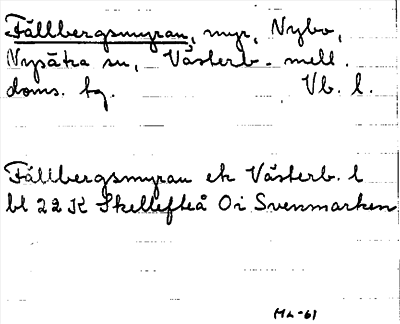 Fällbergsmyran, myr, Nybo,
Nysätra sn, Västerb. mell.
doms. tg. Vb. l.
Fällbergsmyran ek Västerb. l
bl 22 K Skellefteå Oi Svenmarken
HL-61